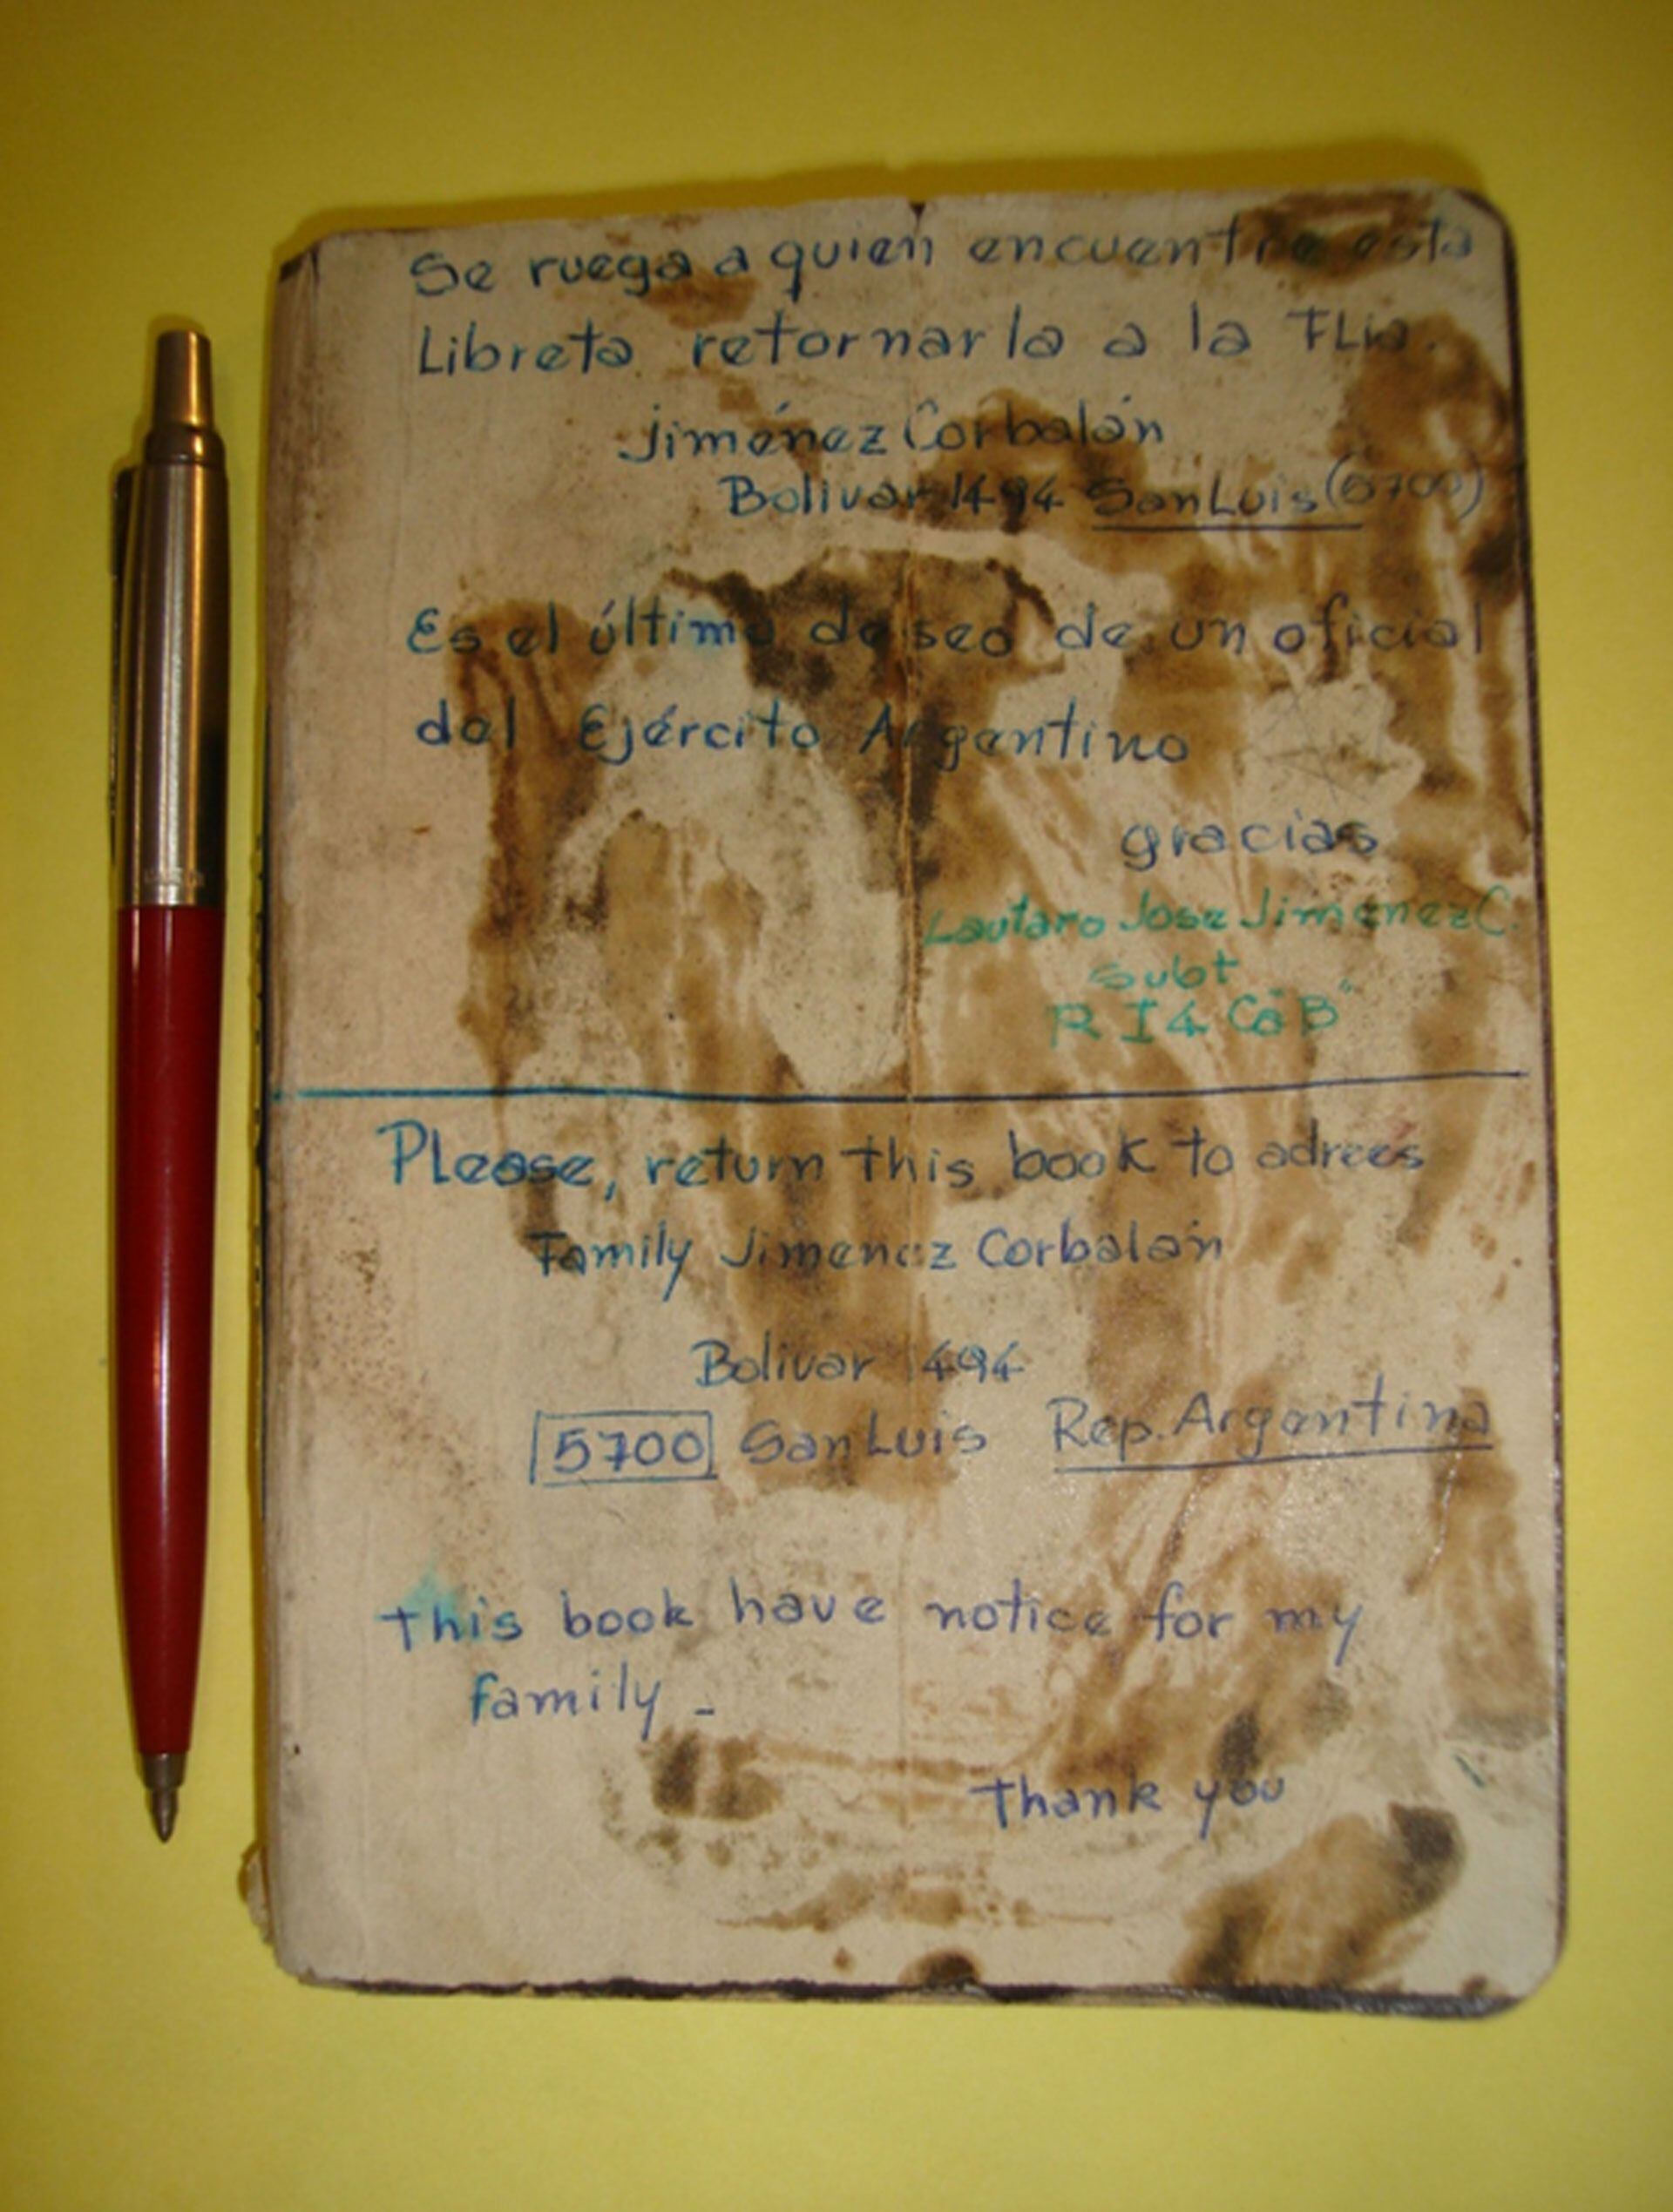 Se ruega a quien encuentre esta
Libreta retornarla a la FLia.
Jiménez Corbalán
Bolivar 1494 San Luis (5700)
Es el último deseo de un oficial
del Ejército Argentino
gracias
Lautaro Jose Jimenez C.
Subt
R I 4 Cª "B"
Please, return this book to adrees
Family Jimenez Corbalán
Bolivar 1494
5700 San Luis Rep. Argentina
this book have notice for my
family -
thank you